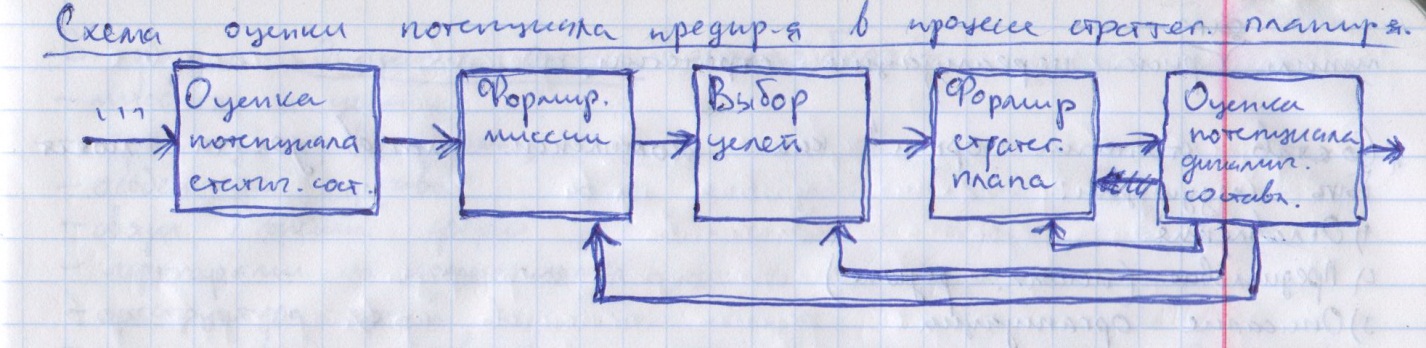 Схема оценки потенциала предпр-я в процессе стратег. планир-я.
Оценка
потенциала
статич. сост.
Формир.
миссии
Выбор
целей
Формир
стратег.
плана
Оценка
потенциала
динамич.
составл.